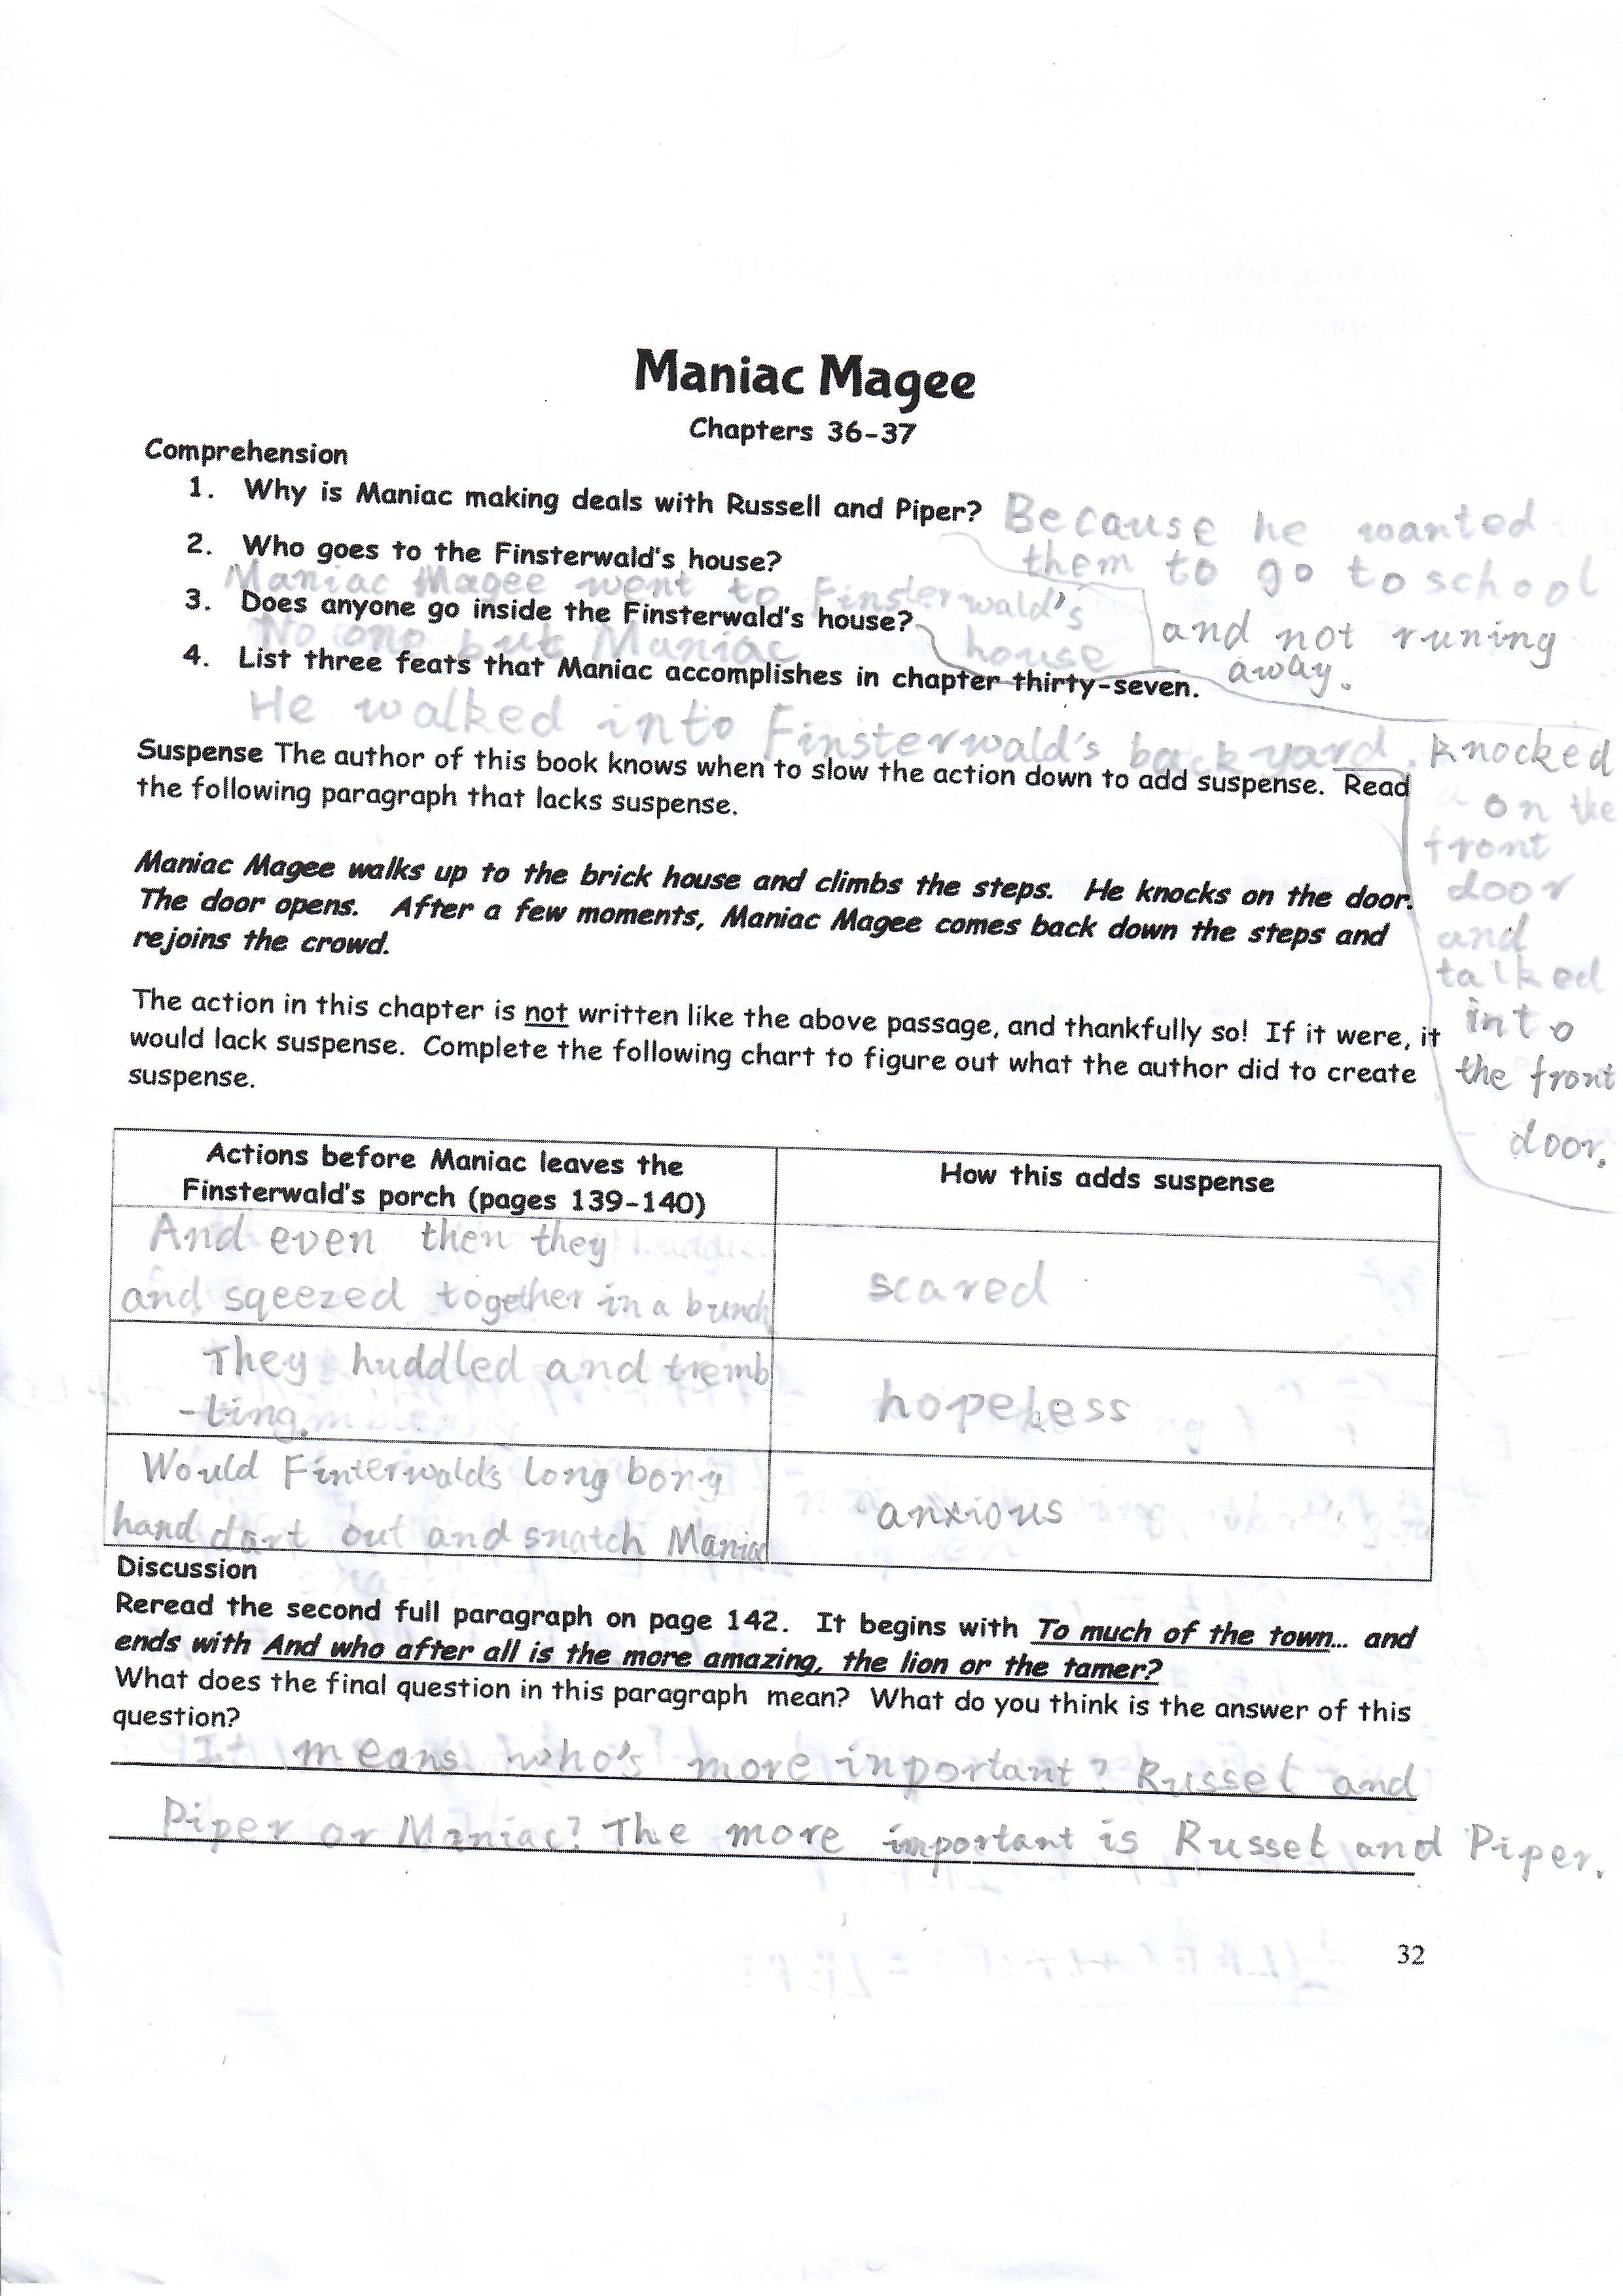 Maniac Magee
Chapters 36-37
Comprehension
1. Why is Maniac making deals with Russell and Piper? Because he wanted
them to go to school
and not runing
away.
2. Who goes to the Finsterwald's house?
Maniac Magee went to Finsterwald's
house
3. Does anyone go inside the Finsterwald's house?
No one but Maniac
4. List three feats that Maniac accomplishes in chapter thirty-seven.
He walked into Finsterwald's backyard. Knocked
on the
front
door
and
talked
into
the front
door.
Suspense The author of this book knows when to slow the action down to add suspense. Read
the following paragraph that lacks suspense.
Maniac Magee walks up to the brick house and climbs the steps. He knocks on the door.
The door opens. After a few moments, Maniac Magee comes back down the steps and
rejoins the crowd.
The action in this chapter is not written like the above passage, and thankfully so! If it were, it
would lack suspense. Complete the following chart to figure out what the author did to create
suspense.
Actions before Maniac leaves the
Finsterwald's porch (pages 139-140)
How this adds suspense
And even then they
and sqeezed together in a bunch
scared
They huddled and tremb
-ling.
hopeless
Would Finterwald's long bony
hand dart out and snatch Maniac
anxious
Discussion
Reread the second full paragraph on page 142. It begins with To much of the town... and
ends with And who after all is the more amazing, the lion or the tamer?
What does the final question in this paragraph mean? What do you think is the answer of this
question?
It means who's more inportant? Russel and
Piper or Maniac? The more important is Russel and Piper.
32